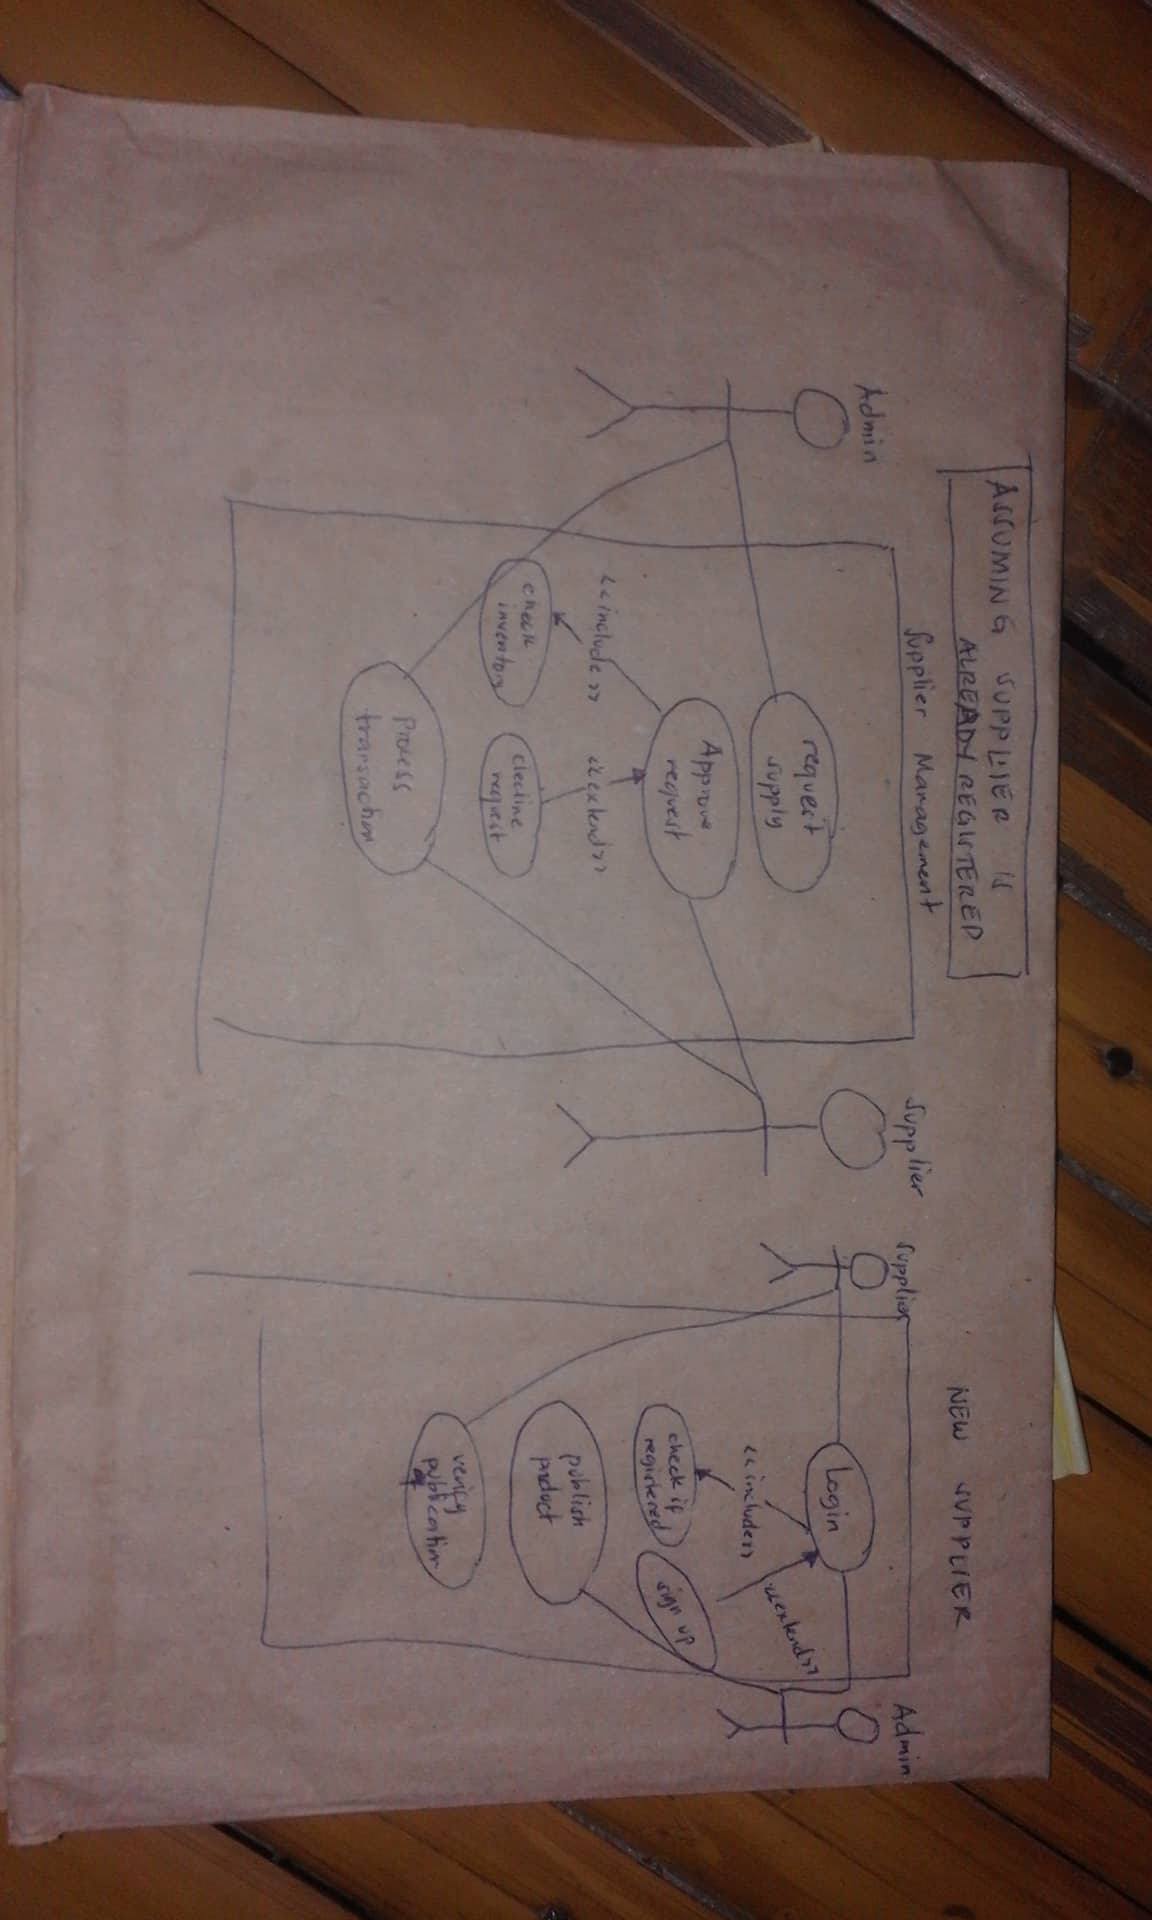 ASSUMING SUPPLIER IS
ALREADY REGISTERED
Supplier Management
Admin
Supplier
request
supply
Approve
request
<<include>>
<<extend>>
check
inventory
decline
request
Process
transaction
NEW SUPPLIER
Supplier
Admin
Login
<<includes>>
<<extend>>
check if
registered
sign up
publish
product
verify
publication